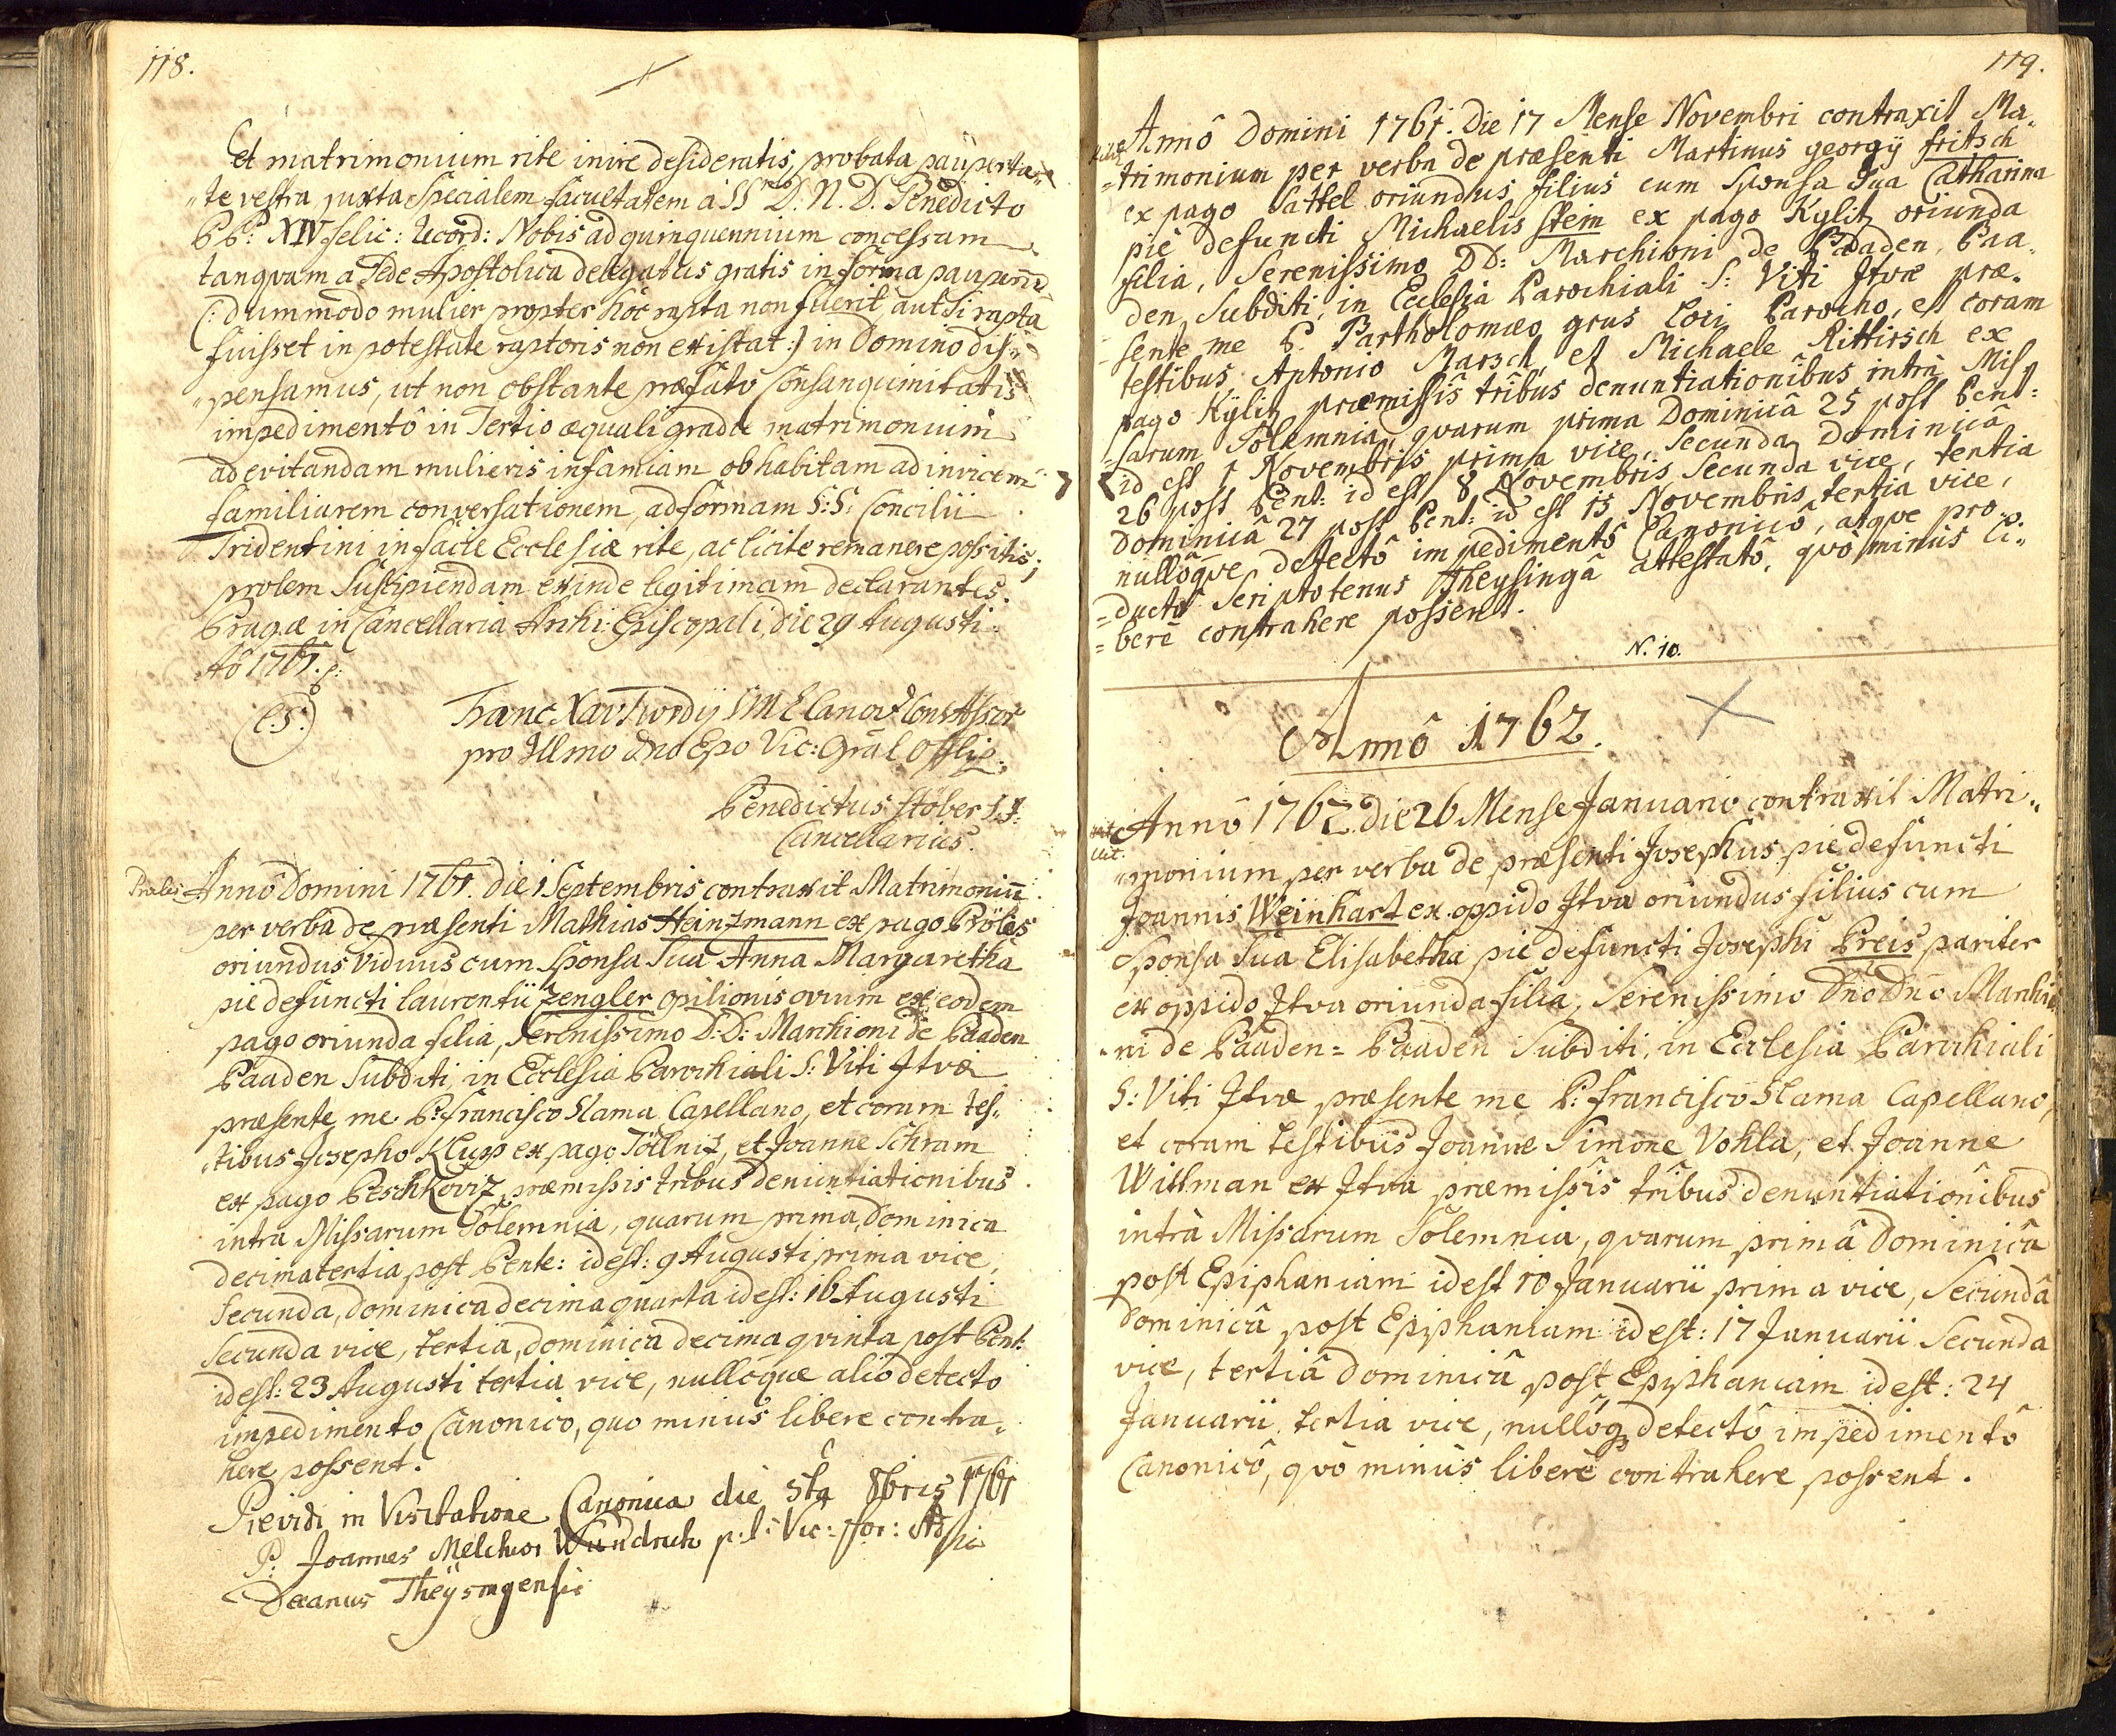 118.
Et matrimonium rite inire desideratis, probata pauperta„
„te vestra juxta Specialem facultatem à SS D. N. D. Benedicto
PP: XIV felic: Record: Nobis ad quinquennium concessam
tanquam a Sede Apostolica delegatus gratis in forma paupern̄
(: dummodo mulier propter hoc rapta non fuerit, aut Si rapta
fuisset in potestate raptoris non existat :) in Domino dis„
„pensamus, ut non obstante præfato Consanquinitatis
impedimentô in Tertio æquali gradu matrimonium
ad evitandam mulieris infamiam ob habitam ad invicem
familiarem conversationem, ad formam S: S: Concilii
Tridentini in facie Ecclesiæ rite, ac licite remanere possitis;
prolem Suscipiendam exinde legitimam declarantes.
Pragæ in Cancellaria Archi: Episcopali, die 29 Augusti
Aô 1761.
(L.S.)
Franc Xav Twrdy SME Canoc Cons Assor
pro Illmo Dno Epo Vic: Gral Offli
Benedictus Stöber
Cancellarius.
Proles
Annô Domini 1761. die 1 Septembris contraxit Matrimoniū
per verba de præsenti Mathias Heinzmann ex pago Pröles
oriundus Viduus cum Sponsa Sua Anna Margaretha
pie defuncti laurentii Zengler opilionis ovium ex eodem
pago oriunda filia, Serenissimo D: D: Marchioni de Baaden
Baaden Subditi, in Ecclesia Parochiali S: Viti Itvæ
præsente me P: Francisco Slama Capellano, et coram tes„
„tibus Josepho Klupp ex pago Töllniz, et Joanne Schram
ex pago Peschkoviz, præmissis tribus denuntiationibus
intra Missarum Solemnia, quarum prima, dominica
decimatertia post Pente: id est: 9 Augusti prima vice,
Secunda, dominica decimaquarta id est: 16 Augusti
Secunda vice, tertia, dominica decima qvinta post Pent:
id est: 23 Augusti tertia vice, nullôque aliô detecto
impedimento Canonico, quo minus libere contra„
here possent.
Prævidi in Visitatione Canonica die 5ta 8bris 1761
P: Joannes Melchior Wundrak p: t: Vic: For:
Decanus Theysingensis
119.
Annô Domini 1761. Die 17 Mense Novembri contraxit Ma„
=trimonium per verba de præsenti Martinus georgÿ fritsch
ex pago Sattel oriundus filius cum Sponsa Sua Catharina
piè defuncti Michaelis Stein ex pago Kylitz oriunda
filia, Serenissimo DD: Marchioni de Baaden, Baa„
den Subditi, in Ecclesia Parochiali S: Viti Itvæ præ„
sente me P. Bartholomæo grus loci Parocho, et coram
testibus, Antonio Marsch, et Michaele Rittirsch ex
pago Kÿlitz præmissîs trîbus denuntiationîbus intrà Mis„
„sarum Solemnia, qvarum prima Dominicâ 25 post Pent:
id est 1 Novembris prima vice, Secunda, Dominicâ
26 post Pent: id est 8 Novembris Secunda vice, tertia
Dominicâ 27 post Pent: id est 15 Novembris tertia vice,
nullôqve, detectô impedimentô Canonicô, atqve pro„
=ductô Scriptotenus Theysingâ attestatô, qvò minùs li„
=berè contrahere possent.
N. 10.
Annô 1762.
Annô 1762 die 26 Mense Januario contraxit Matri„
„monium per verba de præsenti Josephus piè defuncti
Joannis Weinhart ex oppido Itva oriundus filius cum
Sponsa Sua Elisabetha piè defuncti Josephi Preis pariter
ex oppido Itva oriunda filia, Serenissimo Dn̄o Dn̄o Marchio
ni de Baaden = Baaden Subditi, in Ecclesia Parochiali
S: Viti Itvæ præsente me P: francisco Slama Capellano,
et coram testibus Joanne Simone Vohla, et Joanne
Wittman ex Itva præmissîs trîbus denuntiationîbus
intrà Missarum Solemnia, qvarum primâ Dominicâ
post Epiphaniam id est 10 Januarii prima vice, Secundâ
Dominicâ post Epiphaniam id est: 17 Januarii Secunda
vice, tertiâ Dominicâ post Epiphaniam id est: 24
Januarii tertia vice, nullôq; detectô impedimentô
Canonicô, qvò minùs liberè contrahere possent.